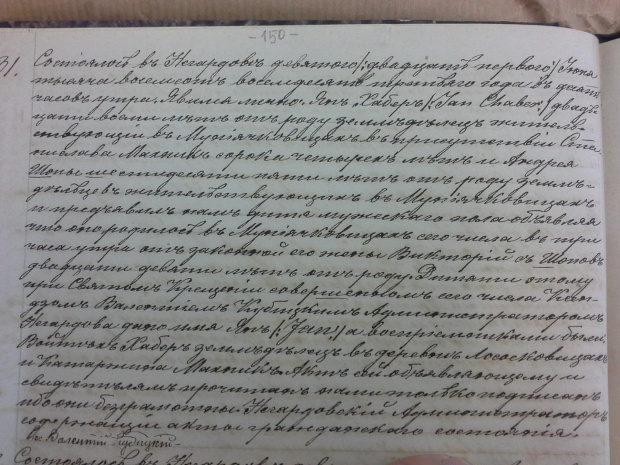 - 150 -
31.
Состоялось въ Негардовѣ девятого /:двадцать первого:/ Іюня
тысяча восемсотъ восемдесятъ третьяго года въ десять
часовъ утра. Явился лично. Янъ Хаберъ /:Jan Chaber:/ двад-
цати восми лѣтъ отъ роду земледѣлецъ жительс-
ствующій въ въ присутствіи Ста-
нислава Махникъ сорока четырехъ лѣтъ и Андрея
шестидесяти пяти лѣтъ отъ роду землѣ-
дѣльцевъ жительствующихъ въ
и предъявилъ намъ дитя мужескаго пола объявляя
что оно родилось въ сего числа въ три
часа утра отъ законной его жены Викторіи съ
двадцати девяти лѣтъ отъ роду. Дитяти этому
при Святомъ Крещеніи совершенномъ сего числа Ксен-
дзомъ Валентіемъ Кубицкимъ Администраторомъ
Негардова дано имя Янъ /:Jan:/ а воспріемниками были:
Хаберъ земледѣлецъ въ деревни
и Катаржина Махникъ. Актъ сей объявляющему и
свидѣтелямъ прочитанъ нами только подписанъ
ибо они безграмотны. Негардовскій Администраторъ
содержащій акты гражданскаго состоянія.
Кс. Валентій Кубицкій
Состоялось въ